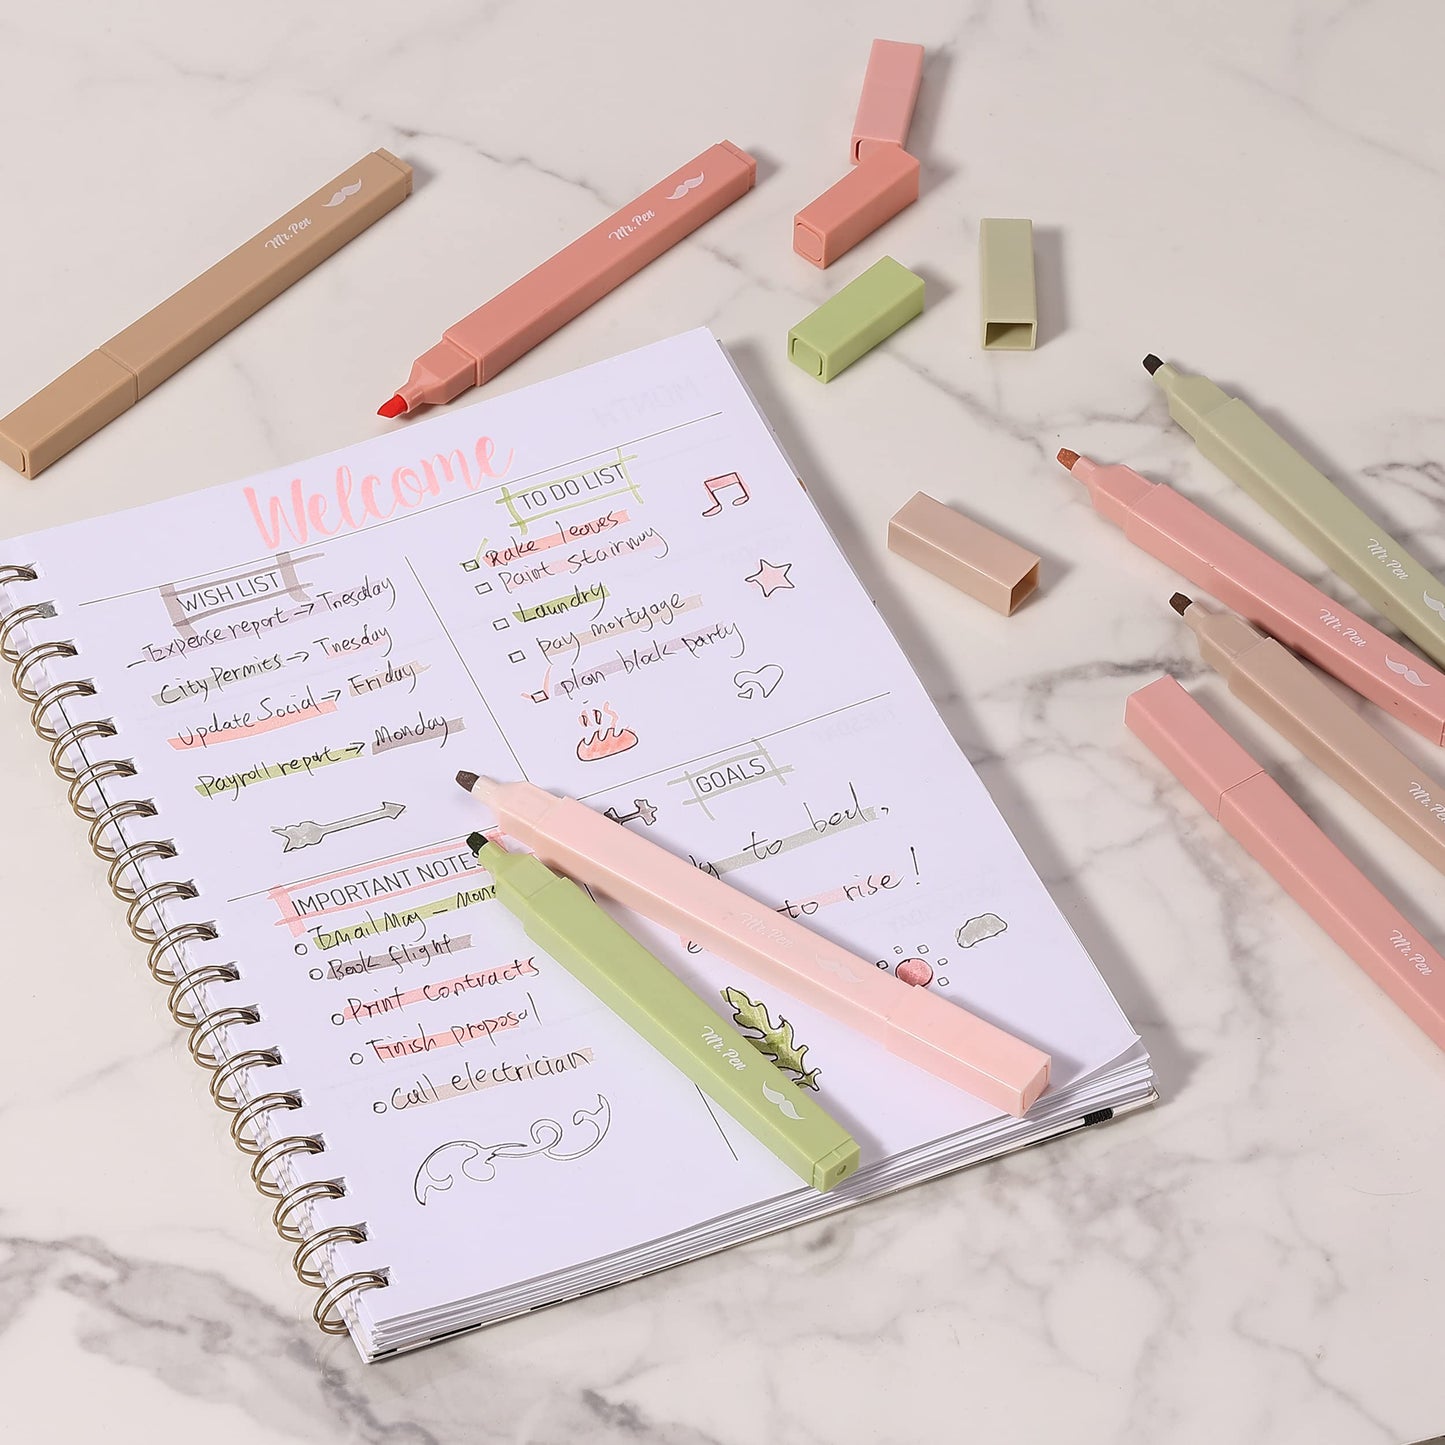 Mr. Pen
Mr. Pen
Welcome
WISH LIST
Expense report → Tnesday
City Permits → Tnesday
Update Social → Friday
Payroll report → Monday
TO DO LIST
Rake leaves
Paint Stairway
Laundry
pay mortyage
plan block party
GOALS
to bed,
to rise!
IMPORTANT NOTES
Email May –
Book flight
Print Contracts
Finish proposal
Call electrician
Mr. Pen
Mr. Pen
Mr. Pen
Mr. Pen
Mr. Pen
Mr. Pen